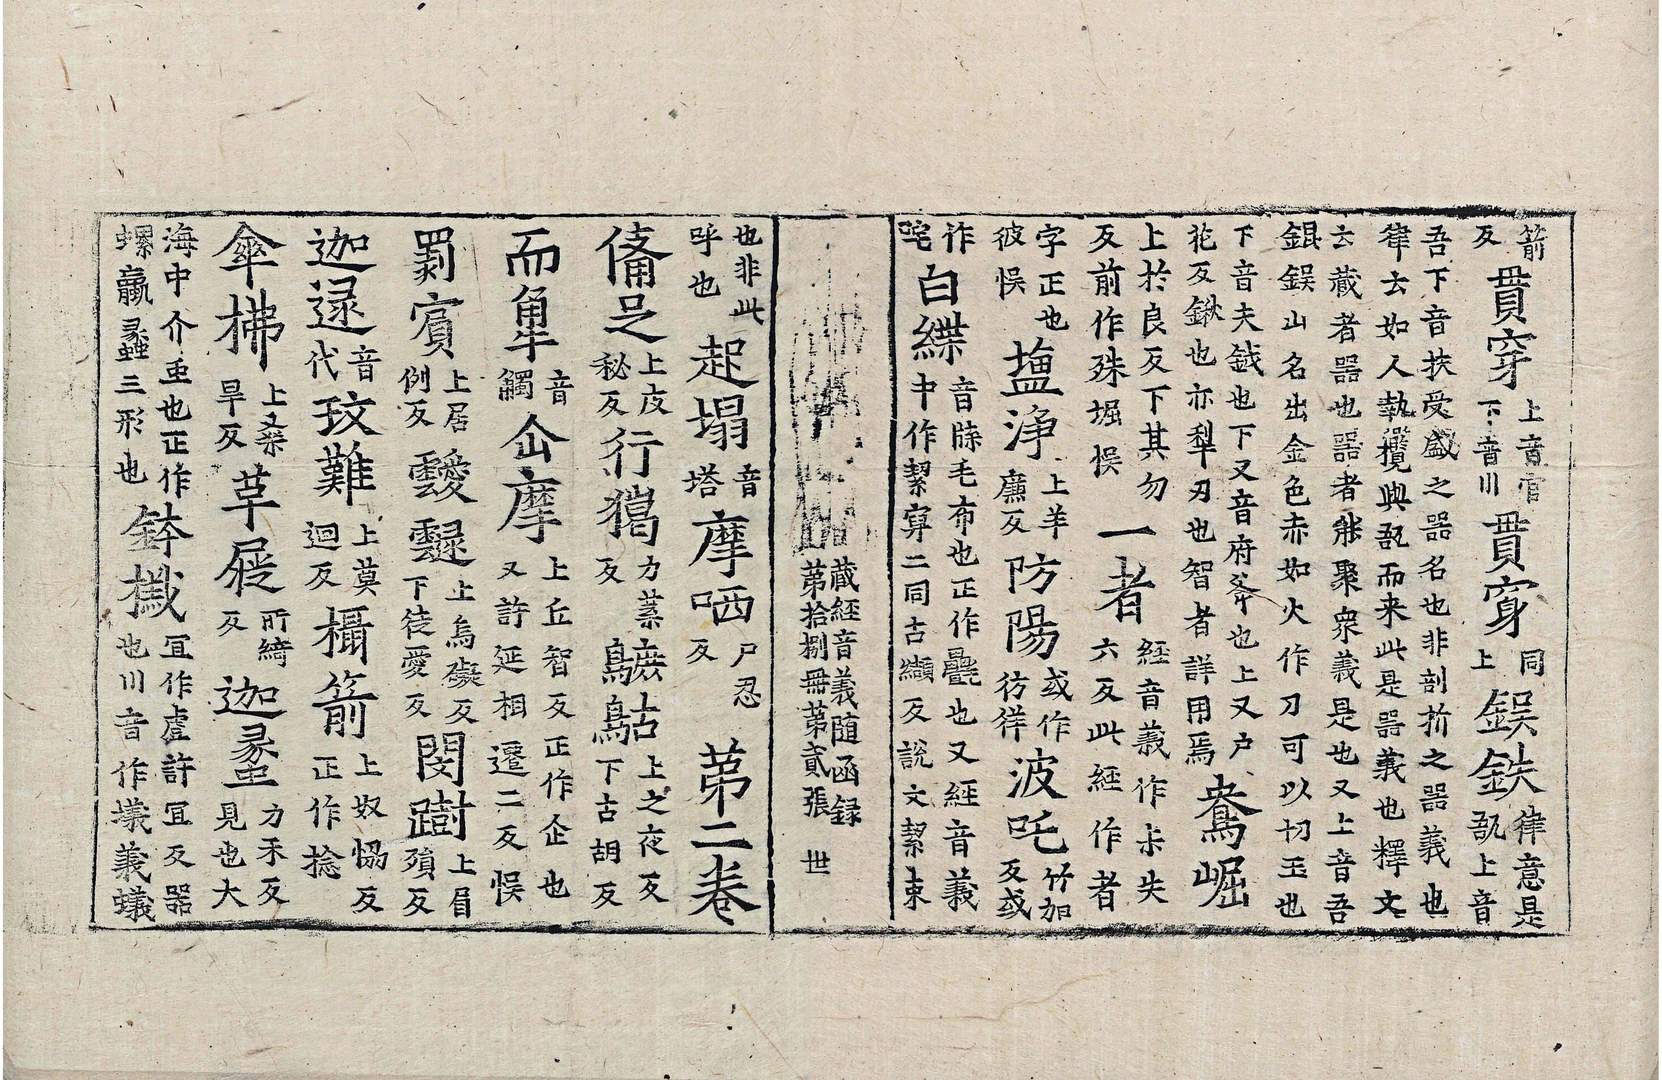 箭反貫穿上音官下音川貫穿同上鋘鈇律意是㼘上音
吾下音扶受盛之器名也非剖折之器義也
律云如人執㼘與㼘而来此是器義也釋文
云蔵者器也器者能聚衆義是也又上音吾
錕鋘山名出金色赤如火作刀可以切玉也
下音夫鉞也下又音府斧也上又户
花反鍬也亦犁刃也智者詳用焉鴦崛
上於良反下其勿反前作殊堀悮一者經音義作尗失六反此經作者
字正也彼悮塩浄上羊廉反防陽或作彷徉波吒竹加反或
作咤白緤音牒毛布也正作㲲也又經音義中作䋈㝉二同古纈反說文䋈束
蔵經音義随函録第拾捌冊第貳張 世
也非此呼也起塌音塔摩哂尸忍反第二卷
俻足上皮秘反行獦力葉反鷓鴣上之夜反下古胡反
而犎音觸𠆤摩上丘智反正作企也又許延相遷二反悮
罽賔上居例反靉靆上烏礙反下徒愛反閔𨄔上眉殞反
迦逯音代玫難上莫迴反㰒箭上奴恊反正作捻
傘柫上桒旱反草屣所綺反迦蠡力禾反見也大
海中介虫也正作螺蠃蠡三形也鉢檝宜作虗許宜反器也川音作㼁義蟻